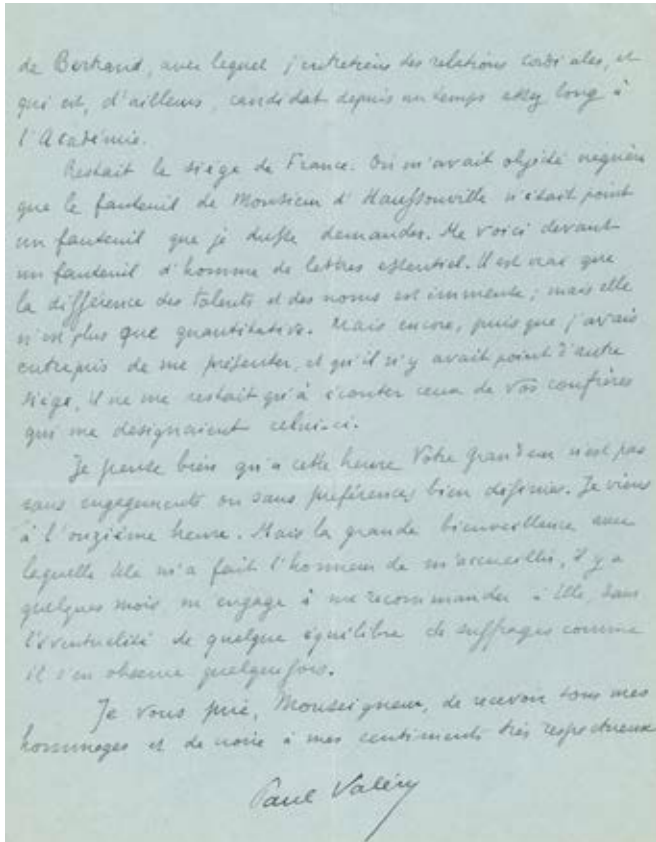 de Bertrand, avec lequel j'entretiens des relations cordiales, et
qui est, d'ailleurs, candidat depuis un temps assez long à
l'Académie.
Restait le siège de France. On m'avait objecté naguère
que le fauteuil de Monsieur d'Haussonville n'était point
un fauteuil que je dusse demander. Me voici devant
un fauteuil d'homme de lettres essentiel. Il est vrai que
la différence des talents et des noms est immense ; mais elle
n'est plus que quantitative. Mais encore, puisque j'avais
entrepris de me présenter, et qu'il n'y avait point d'autre
siège, il ne me restait qu'à écouter ceux de vos confrères
qui me désignaient celui-ci.
Je pense bien qu'à cette heure Votre Grandeur n'est pas
sans engagements ou sans préférences bien définies. Je viens
à l'onzième heure. Mais la grande bienveillance avec
laquelle Elle m'a fait l'honneur de m'accueillir, il y a
quelques mois m'engage à me recommander à Elle, dans
l'éventualité de quelque équilibre de suffrages comme
il s'en observe quelquefois.
Je vous prie, Monseigneur, de recevoir tous mes
hommages et de croire à mes sentiments très respectueux
Paul Valéry